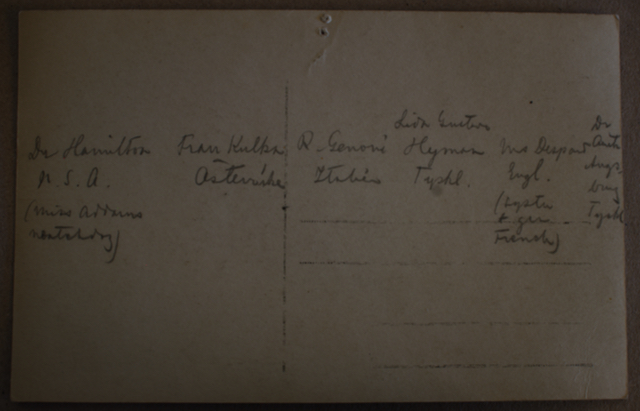 Dr Hamilton
U. S. A.
(Miss Addams
Frau Kulka
Österrike
R. Genoni
Italien
Lida Gustava
Heyman
Tyskl.
Mrs Despard
Engl.
(syster
t. gen.
French)
Dr
Anita
Augs-
burg
Tyskl